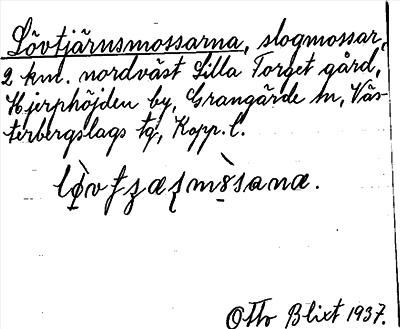 Lövtjärnsmossarna, slogmossar,
2 km. nordväst Lilla Torget gård,
Hjerphöjden by, Grangärde sn, Väs-
terbergslags tg, Kopp. l.
Otto Blixt 1937.